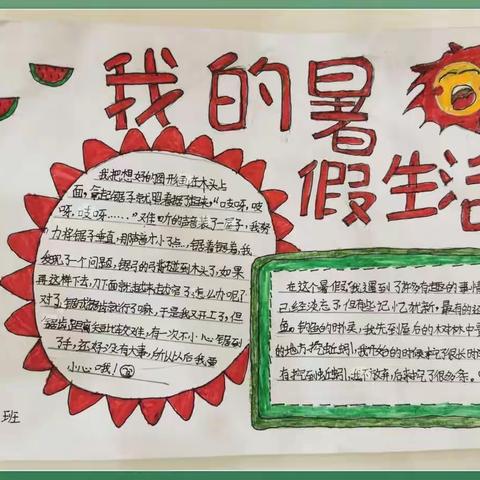 我的暑
假生活
我把想好的图形画在木头上
面，拿起锯子就
“吱呀，吱
呀，吱呀……”难听的声音装了一屋子，我努
力将锯子垂直，那声音才小了点，锯着锯着，我
发现了一个问题，锯弓的背碰到木头了，如果
再这样下去，刀下面就
怎么办呢？
对了，锯
就行了嘛，于是我又开工了，但
锯齿
比较难，有一次不小心锯到
了手，还好没有大事，所以以后我要
小心哦！
在这个暑假，我遇到了许多有趣的事情
已经淡忘了但有些记忆犹新，最有的
鱼。钓鱼的时候，我先到屋后的木材林中
的地方挖蚯蚓，我开始的时候挖了很长时
有挖到蚯蚓，
放弃，后来挖了很多条。
班